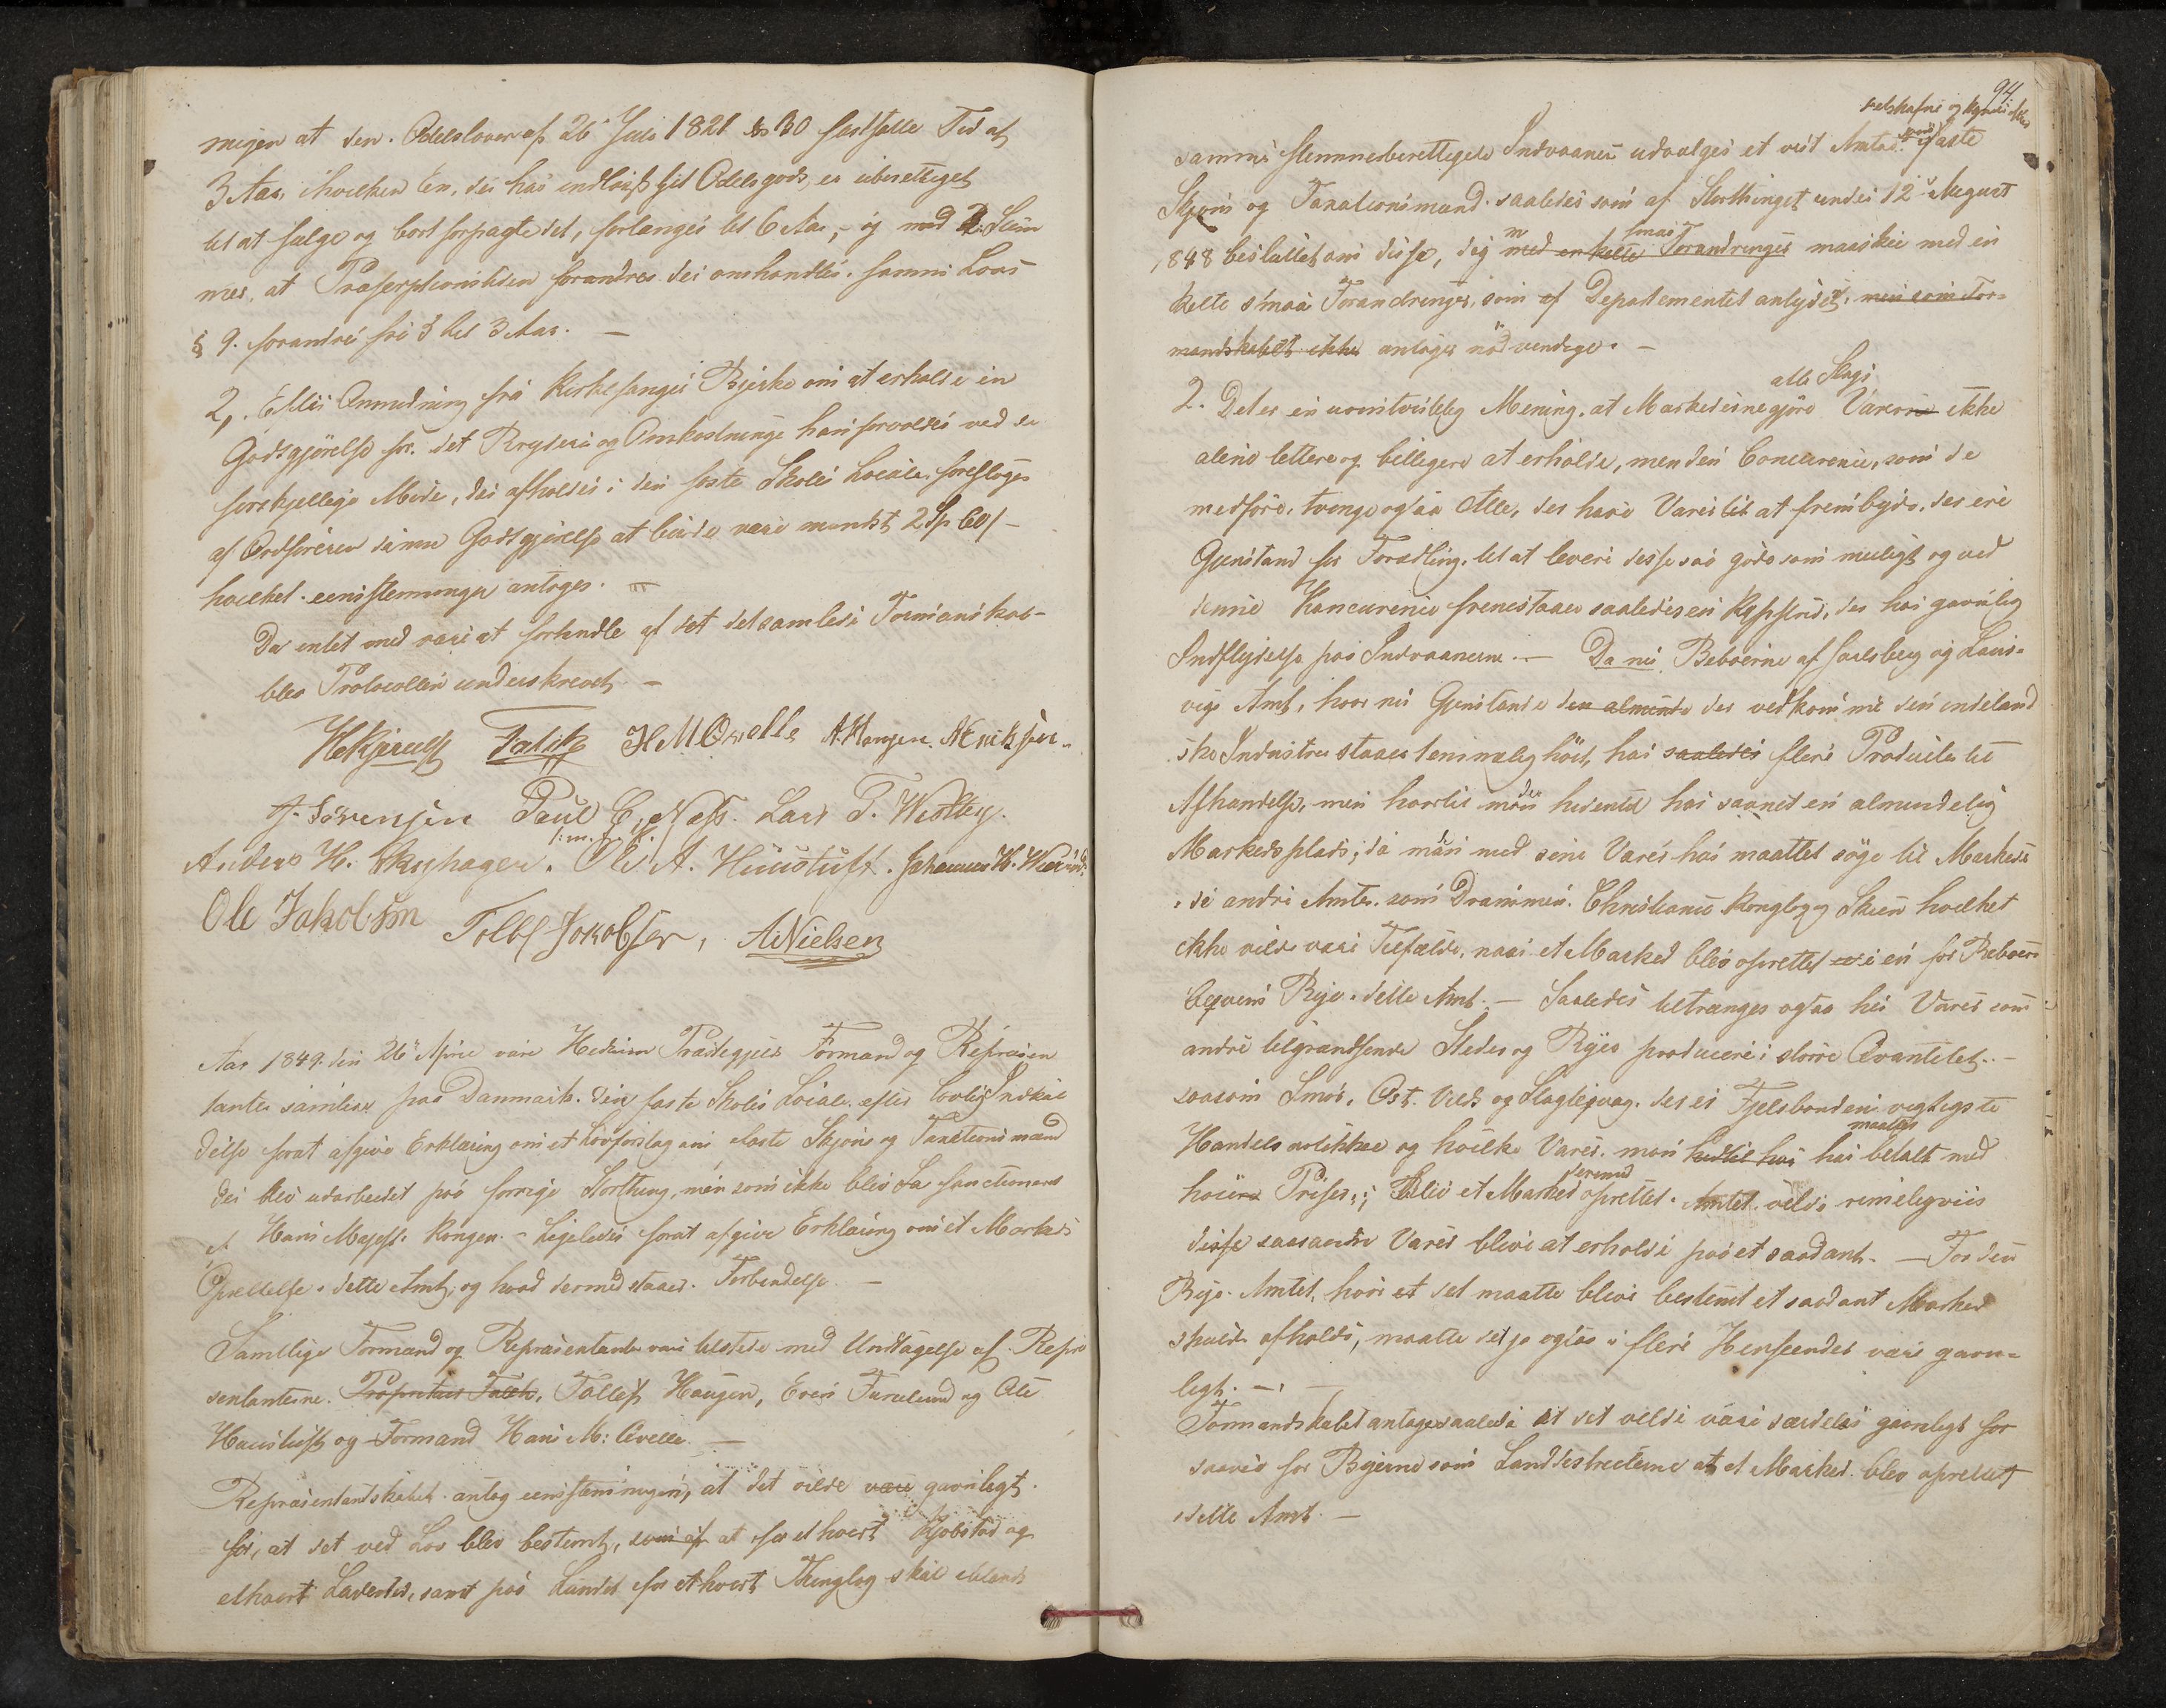 migen at den Odelsloven af 26 Juli 1821 § 30 fastsatte Tid af
3 Aar, i hvilken En, der har indløist sit Odelsgods, er uberettiget
til at sælge og bortforpagte det, forlænges til 6 Aar, og med 2 Stem
mer, at Præscriptionstiden forandres der omhandles samme Lovs
§ 9. forandres fra 5 til 3 Aar. —
2. Efter Anmodning fra Kirkesanger Bjerke om at erholde en
Godtgjørelse for det Bryderi og Omkostninger han forvoldes ved de
forskjellige Møder, der afholdes i den faste Skoles Locale, foresloges
af Ordføreren denne Godtgjørelse at burde være mindst 2 Sp 60 /-
hvilket eenstemmingen antoges.
Da intet mere var at forhandle af det det samlede Formandskab
blev Protocollen underskrevet —
Falck H M Orvelle A. Haugen. N Eriksen
A. Sørensen Paul C. Næss. Lars T. Westby.
m. f. P.
Anders H. Skryhagen. Ole A. Huustuft. Johannes H.
Ole Jakobsen Tollef Jakobsen, A Nielsen
Aar 1849 den 26 April vare Hedrum Præstegjelds Formænd og Repræsen
tanter samlede paa Danmark den faste Skoles Locale efter lovlig Indkal
delse forat afgive Erklæring om et Lovforslag om faste Skjøns og Taxationsmænd
der blev udarbeidet paa forrige Storthing, men som ikke blev sanctioneret
af Hans Majest. Kongen. — Ligeledes forat afgive Erklæring om et Markeds
Oprettelse i dette Amt, og hvad dermed staaer i Forbindelse. —
Samtlige Formænd og Repræsentanter vare tilstede med Undtagelse af Repræ
sentanterne Proprietær Falck, Tollef Haugen, Even Furulund og Ole
Huustuft og Formand Hans M: Orvelle —
Repræsentantskabet antog eenstemmigen, at det vilde være gavnligt
for, at det ved Lov blev bestemt, som af at for ethvert Kjøbstad og
ethvert Ladested, samt paa Landet for ethvert Thinglag skal iblandt
94
samme stemmeberettigede Indvaanere udvælges et vist Antal faste
Skjøns og Taxationsmænd saaledes som af Storthinget under 12 August
smaa
1848 besluttet om disse, dog med enkelte Forandringer maaskee med en
kelte smaa Forandringer, som af Departementet antydet, men som For-
mandskabet ikke antager nødvendige. —
alle Slags
2. Det er en uomtvistelig Mening, at Markederne gjøre Varerne ikke
alene lettere og billigere at erholde, men den Concurence, som de
medføre, tvinge ogsaa Alle, der have Varer til at frembyde, der ere
Gjenstand for Forædling, til at levere disse saa gode som muligt og ved
denne Koncurence fremstaaer saaledes en Kappestrid, der har gavnlig
Indflydelse paa Indvaanerne. — Da nu Beboerne af Jarlsberg og Laur-
vigs Amt, hvor nu Gjenstande den alminde der vedkomme den indeland
ske Industrie staaer temmelig høit, har saaledes flere Producter til
Afhændelse, men hvortil man hidentil har savnet en almindelig
Markedsplads, da man med sine Varer har maattet søge til Markeder
i de andre Amter som Drammen, Christiania Kongsberg og Skien hvilket
ikke vilde være Tilfælde, naar et Marked blev oprettet i en for Beboerne
beqvem Bye i dette Amt. — Saaledes tiltrænges ogsaa her Varer som
andre tilgrændsende Steder og Byer producere i større Qvantitet —
saasom Smør, Ost, Vildt og Slagteqvæg, der er Fjeldbondens vigtigste
maattet
Handelsartikler og hvilke Varer man hidtil har har betalt med
dermed
høiere Priser; Blev et Marked oprettet i Amtet vilde rimeligviis
disse saasandre Varer blive at erholde paa et saadant. — For den
Bye i Amtet, hvor et det maatte blive bestemt et saadant Marked
skulde afholdes, maatte det jo ogsaa i flere Henseender være gavn-
ligt. —
Formandskabet antager saaledes at det vilde være særdeles gavnligt for
saavel for Byerne som Landdistricterne at et Marked blev oprettet
i dette Amt. —